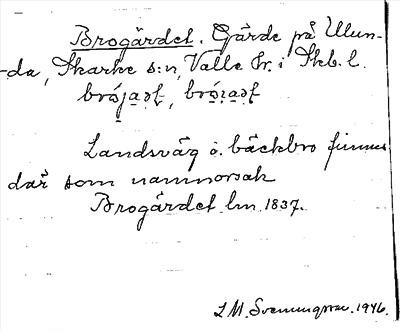 Brogärdet. Gärde på Ulun-
-da, Skarke s:n, Valle hr. i Skb. l.
Landsväg o. bäckbro finnes
där som namnorsak
Brogärdet lm. 1837.
L M. Svenungsson. 1946.